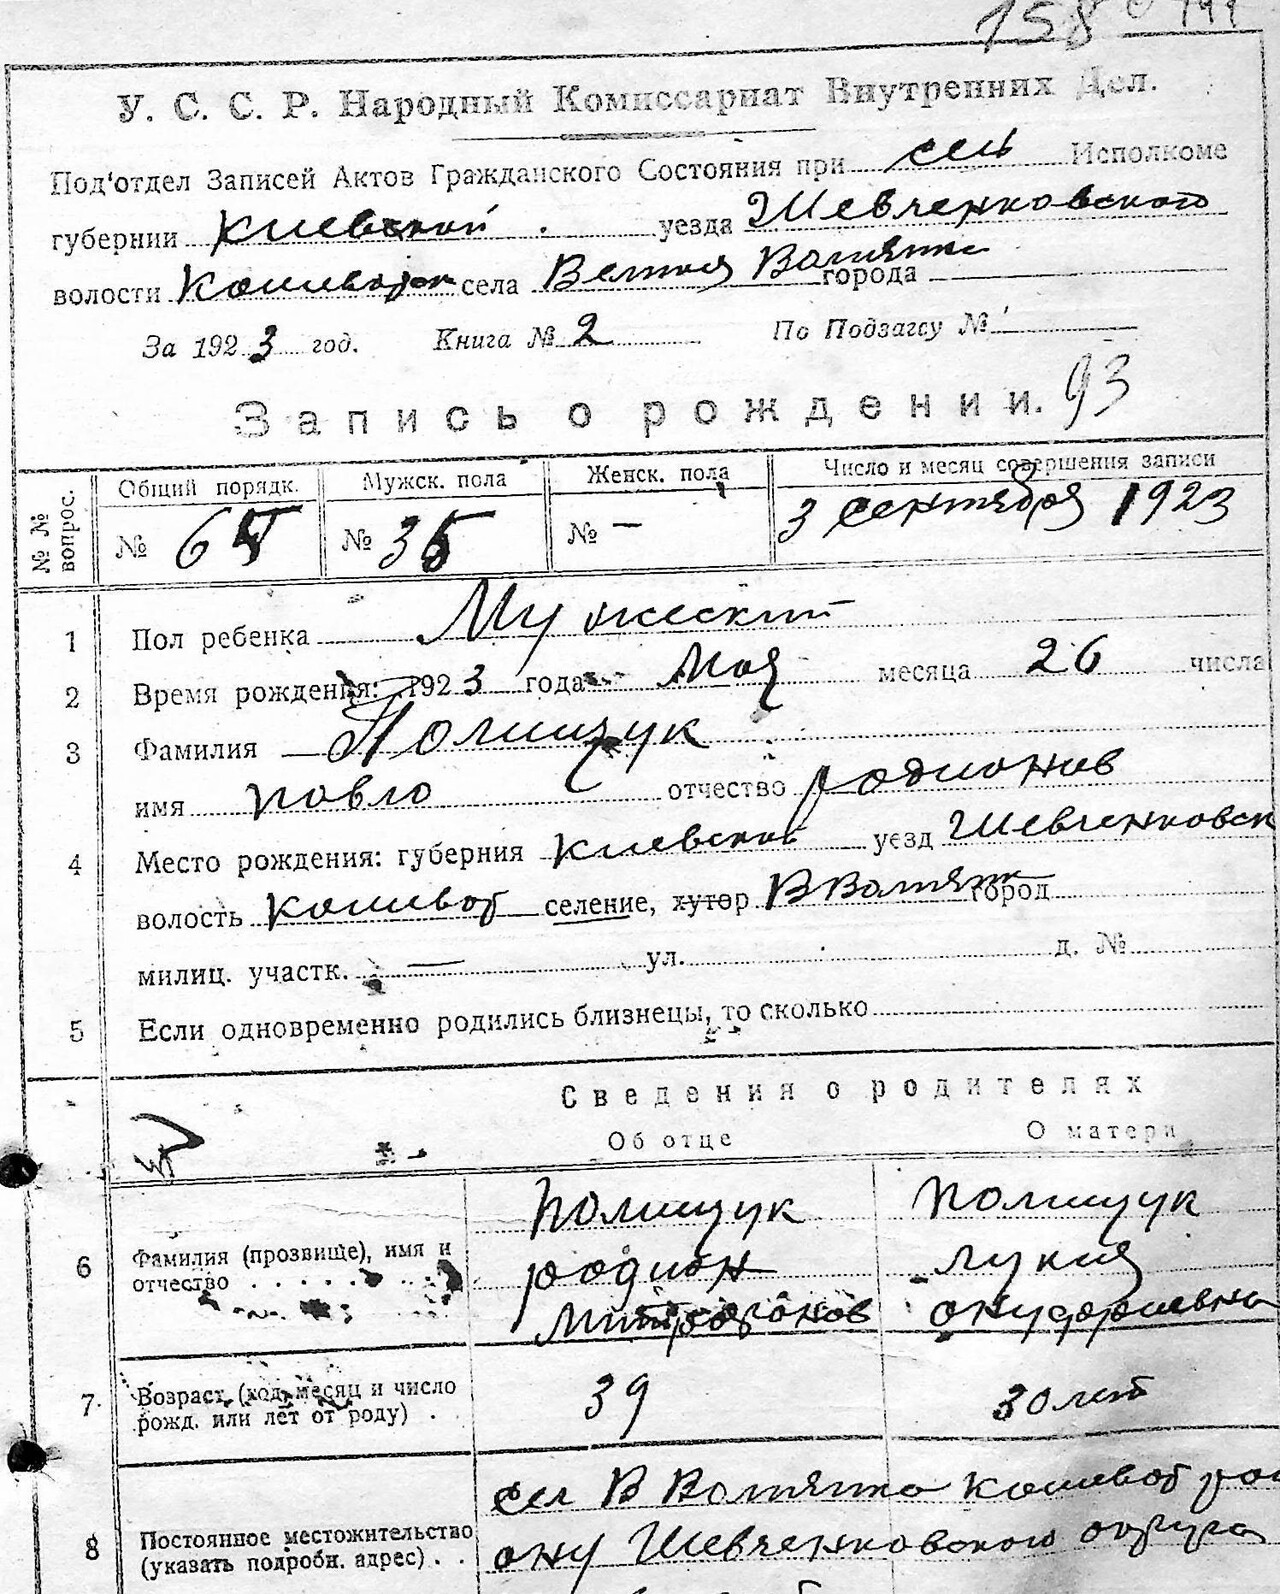 158
У. С. С. Р. Народный Комиссариат Внутренних Дел.
Под'отдел Записей Актов Гражданского Состояния при сель Исполкоме
губернии Киевской уезда Шевченковского
волости села города
За 1923 год. Книга № 2 По Подзагсу №
Запись о рождении. 93
№ № вопрос. Общий порядк. Мужск. пола Женск. пола Число и месяц совершения записи
№ 65 № 35 № — 3 сентября 1923
1 Пол ребенка Мужеский
2 Время рождения: 1923 года Мая месяца 26 числа
3 Фамилия Полищук
имя Повло отчество Родионов
4 Место рождения: губерния Киевской уезд Шевченковск
волость Кошеват селение, хутор В Вотянк город
милиц. участк. — ул. д. №
5 Если одновременно родились близнецы, то сколько
Сведения о родителях
Об отце О матери
Полищук Полищук
6 Фамилия (прозвище), имя и отчество Родион Лукия
Онуфриевна
7 Возраст (год, месяц и число рожд. или лет от роду) . 39 30 лет
сел В Вотянка Кошеват рай
8 Постоянное местожительство (указать подробн. адрес) . . ону Шевченковского округа